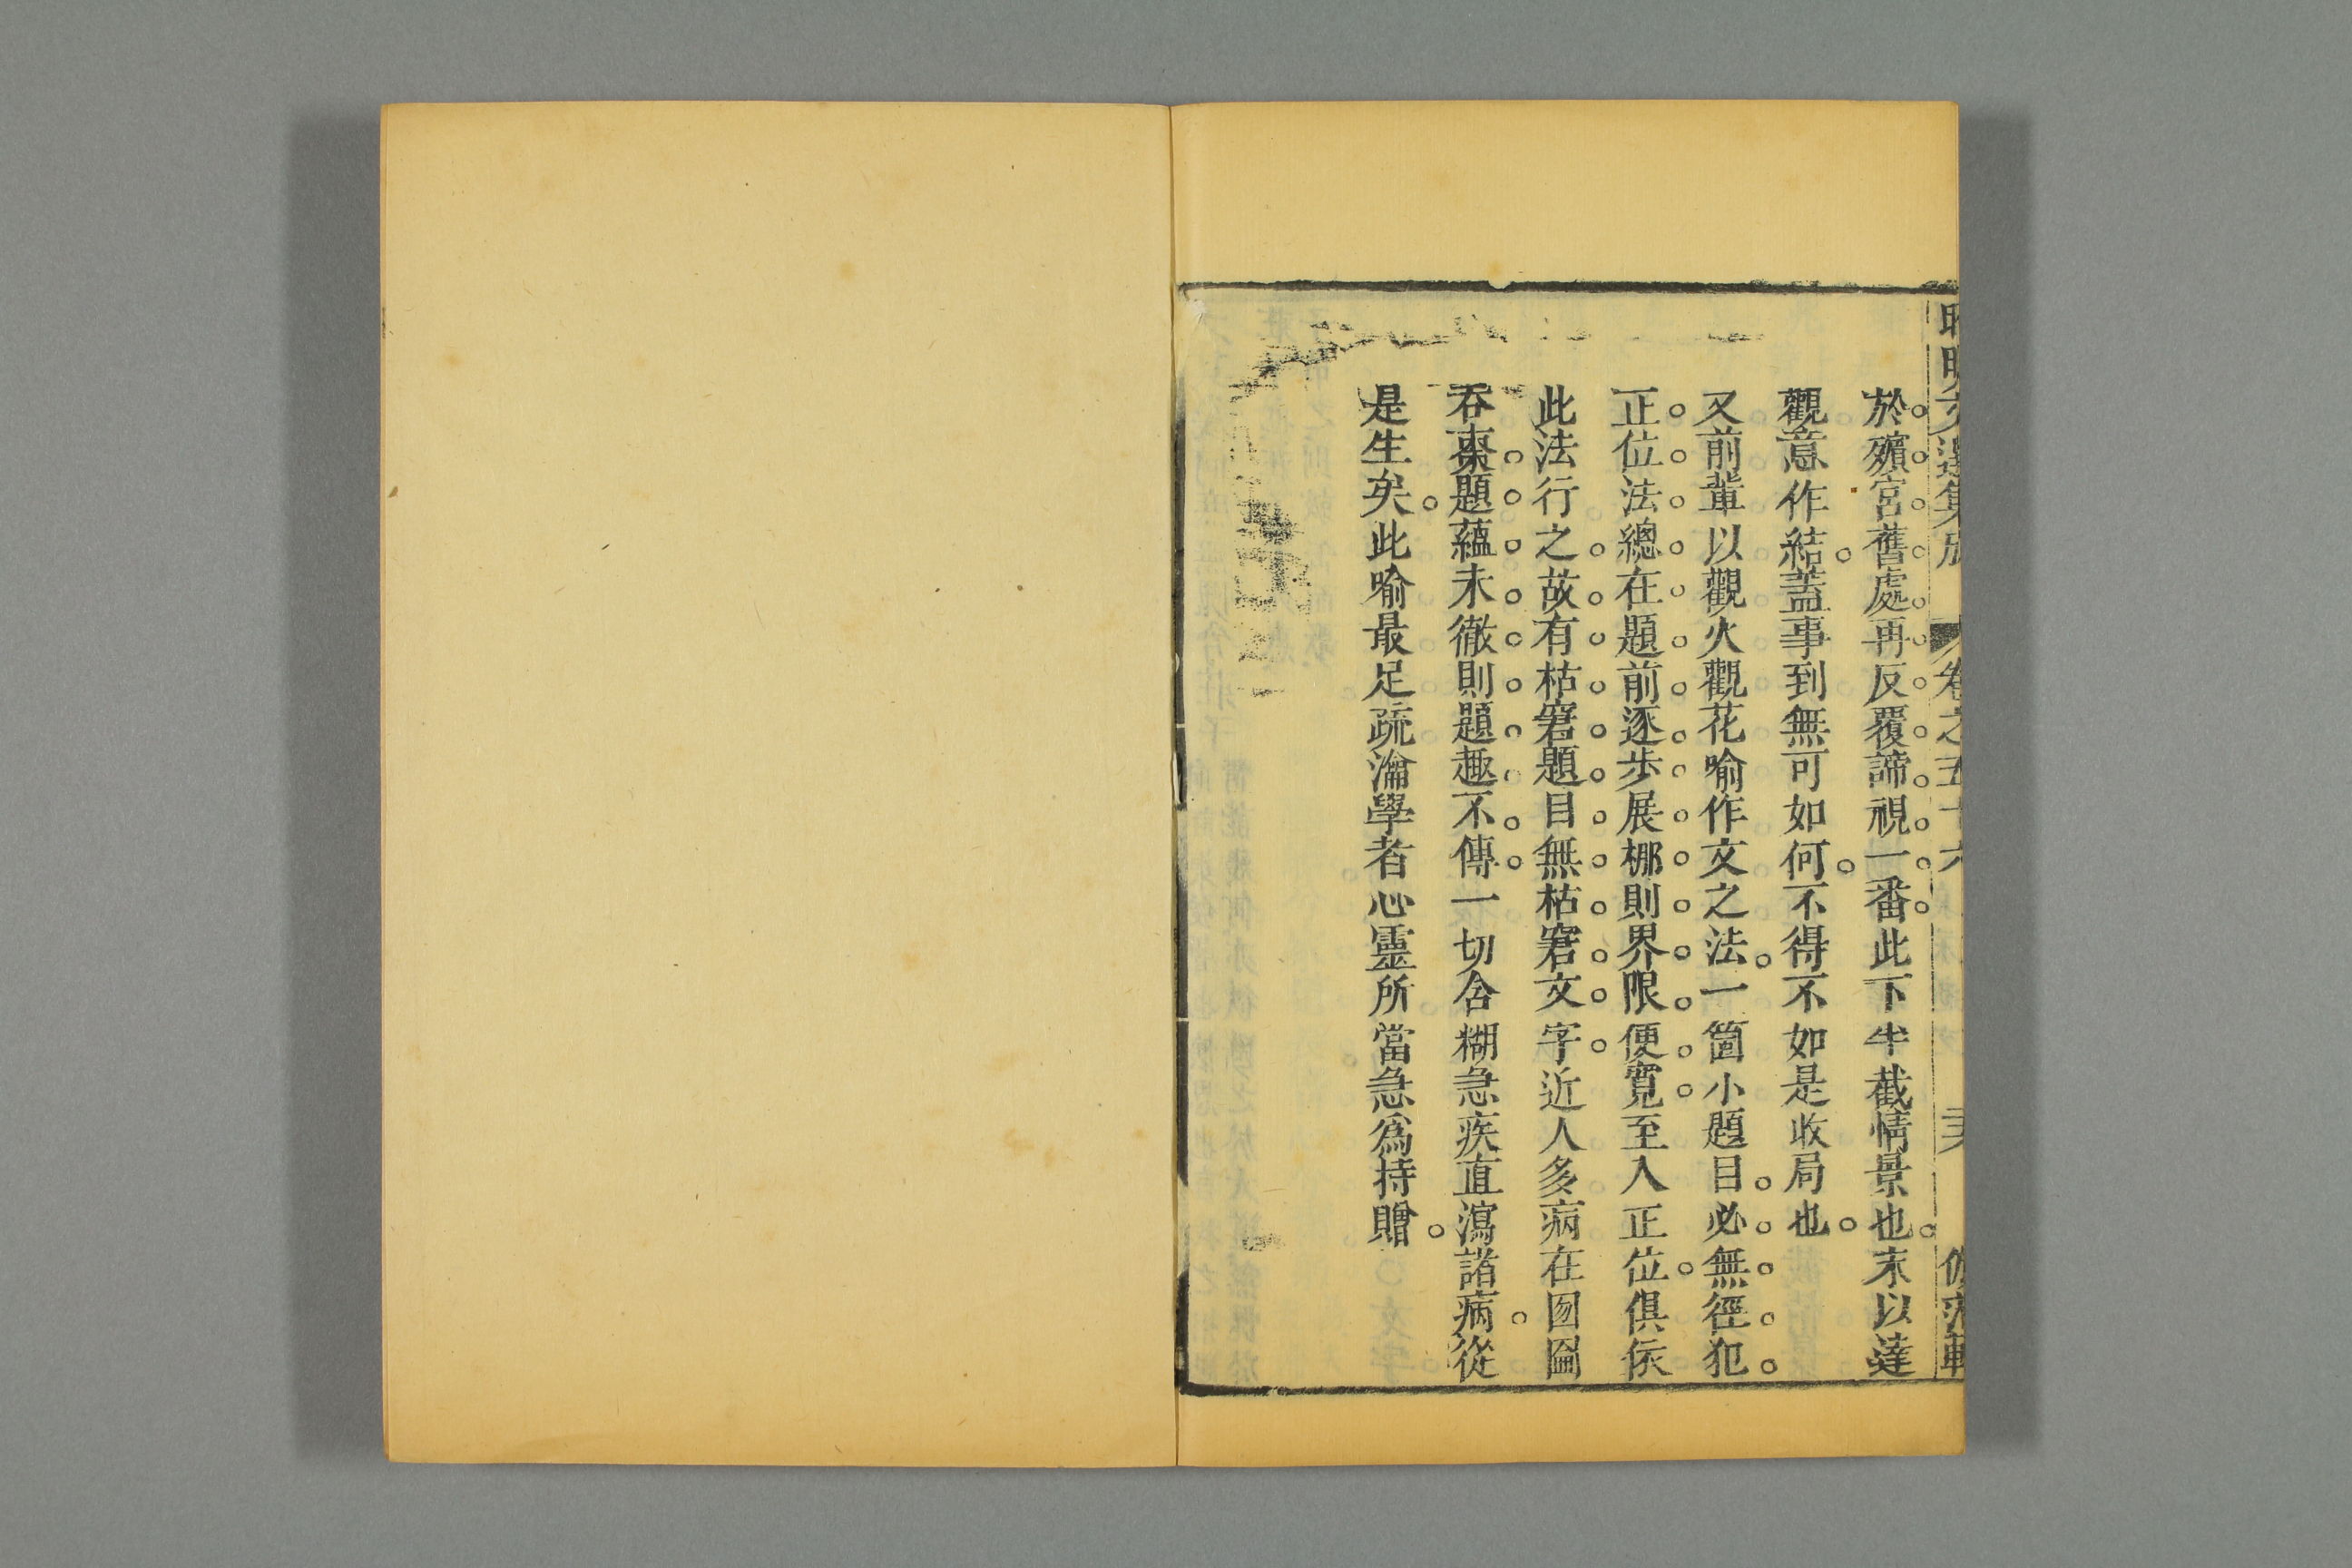 昭明文選集成 卷之五十六 三六 倣范軒
於殯宮舊處再反覆諦視一番此下半截情景也末以達
觀意作結蓋事到無可如何不得不如是收局也
又前輩以觀火觀花喻作文之法一箇小題目必無徑犯
正位法總在題前逐步展挪則界限便寬至入正位俱依
此法行之故有枯窘題目無枯窘文字近人多病在囫圇
吞棗題蘊未徹則題趣不傳一切含糊急疾直瀉諸病從
是生矣此喻最足疏瀹學者心靈所當急爲持贈